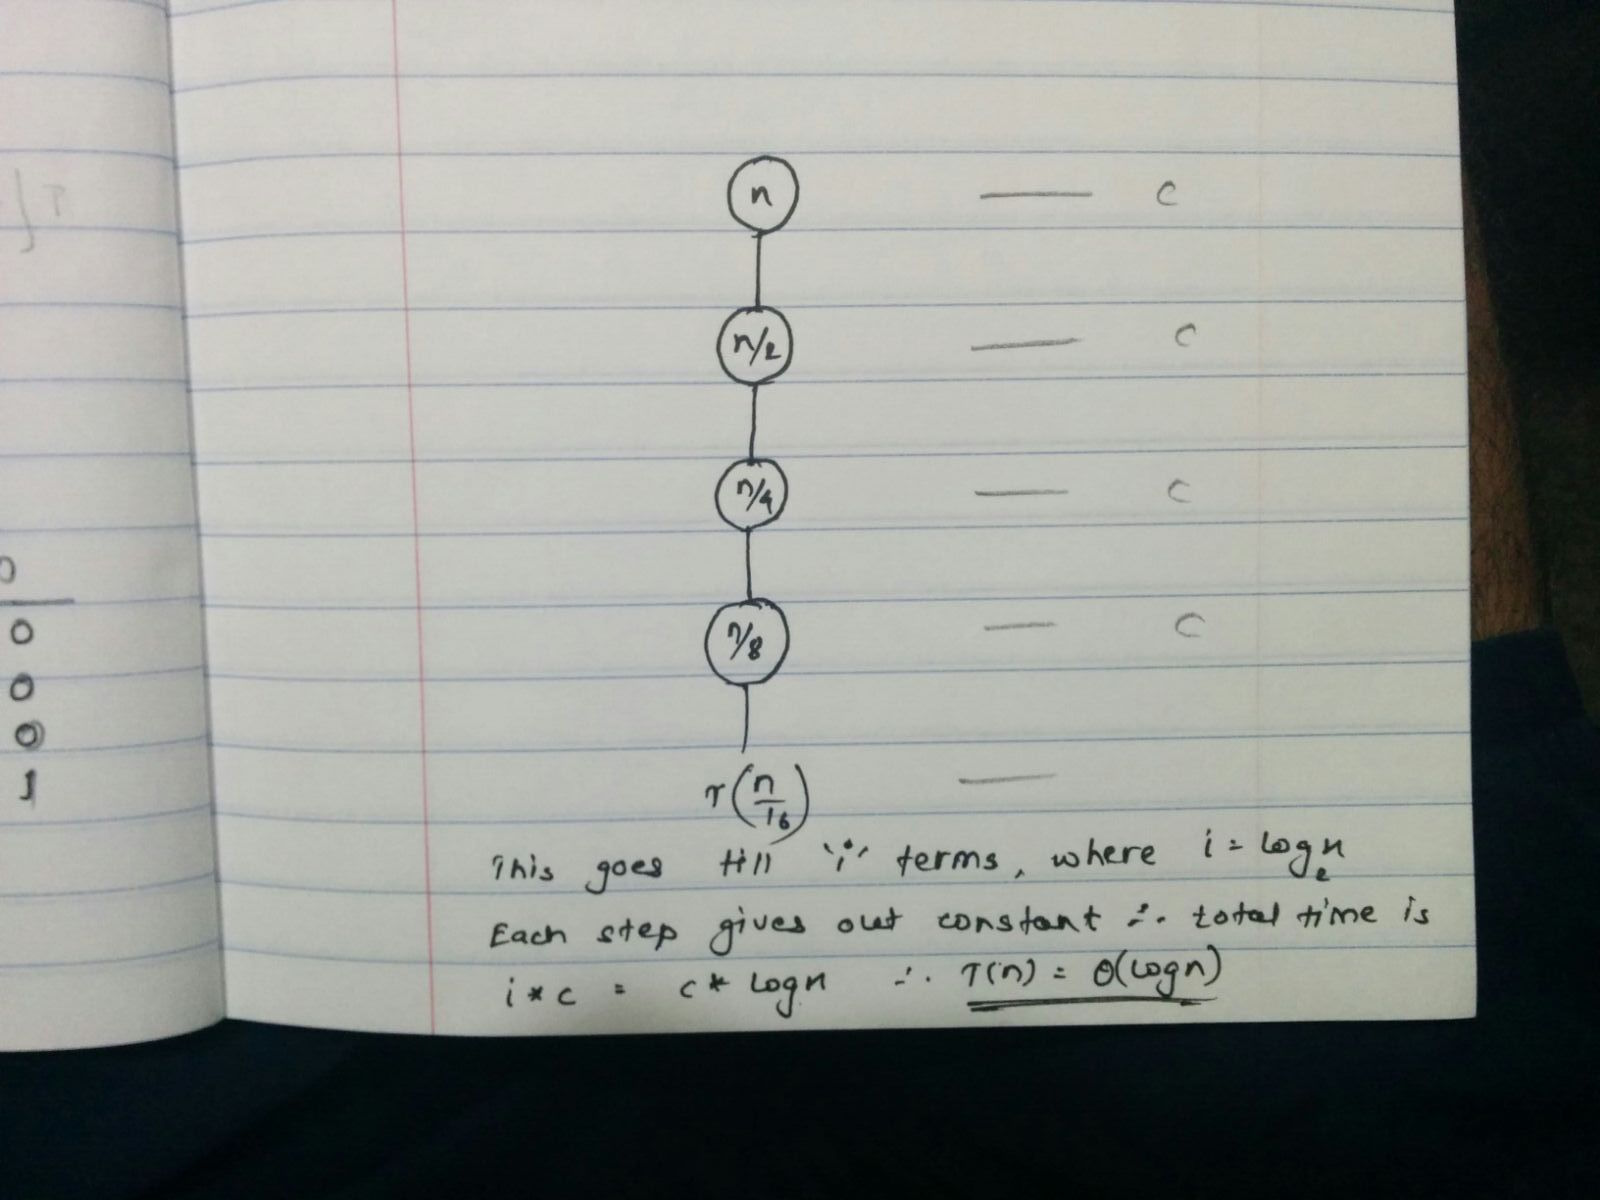 0
0
0
0
1
n — c
n/2 — c
n/4 — c
n/8 — c
T(n/16) —
This goes till 'i' terms, where i = log₂n
Each step gives out constant ∴ total time is
i * c = c * logn ∴ T(n) = θ(logn)